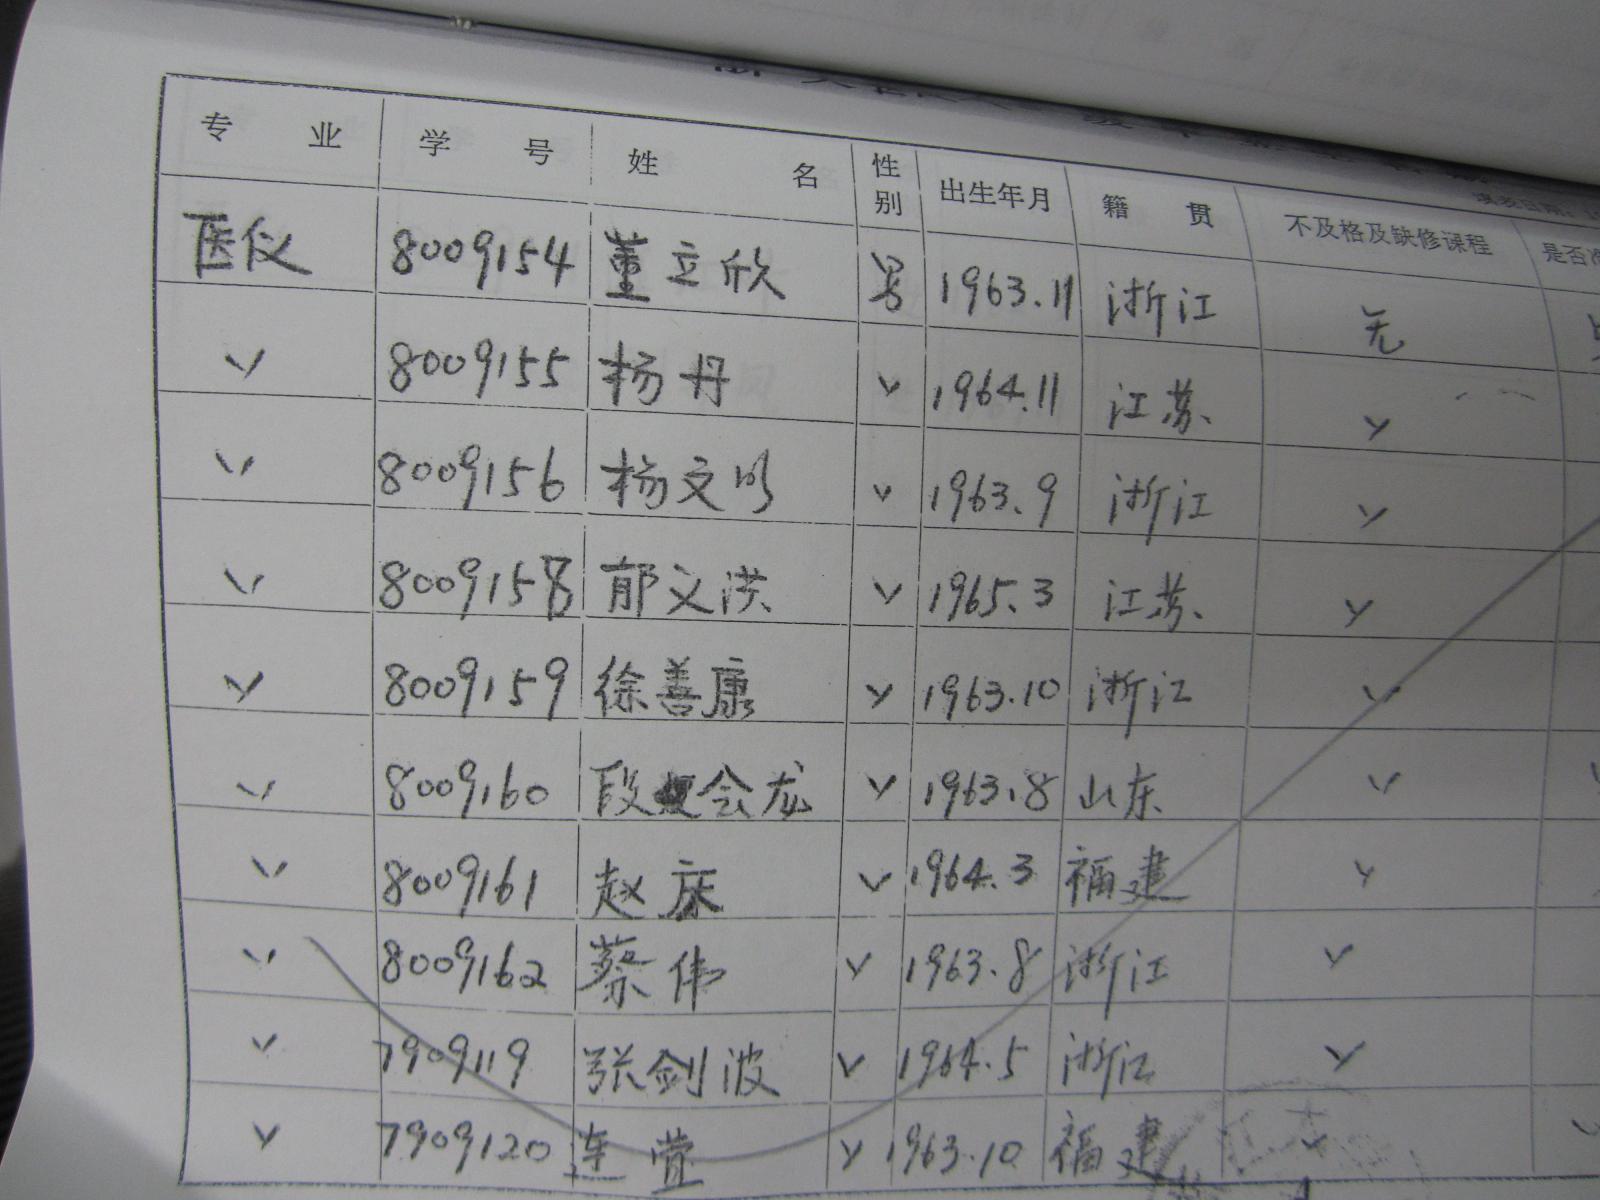 专业 学号 姓名 性别 出生年月 籍贯 不及格及缺修课程 是否准
医仪 8009154 董立欣 男 1963.11 浙江 无
〃 8009155 杨丹 〃 1964.11 江苏 〃
〃 8009156 杨文明 〃 1963.9 浙江 〃
〃 8009158 郁文洪 〃 1965.3 江苏 〃
〃 8009159 徐善康 〃 1963.10 浙江 〃
〃 8009160 段会龙 〃 1963.8 山东 〃
〃 8009161 赵庆 〃 1964.3 福建 〃
〃 8009162 蔡伟 〃 1963.8 浙江 〃
〃 7909119 张剑波 〃 1964.5 浙江 〃
〃 7909120 连莹 〃 1963.10 福建 〃